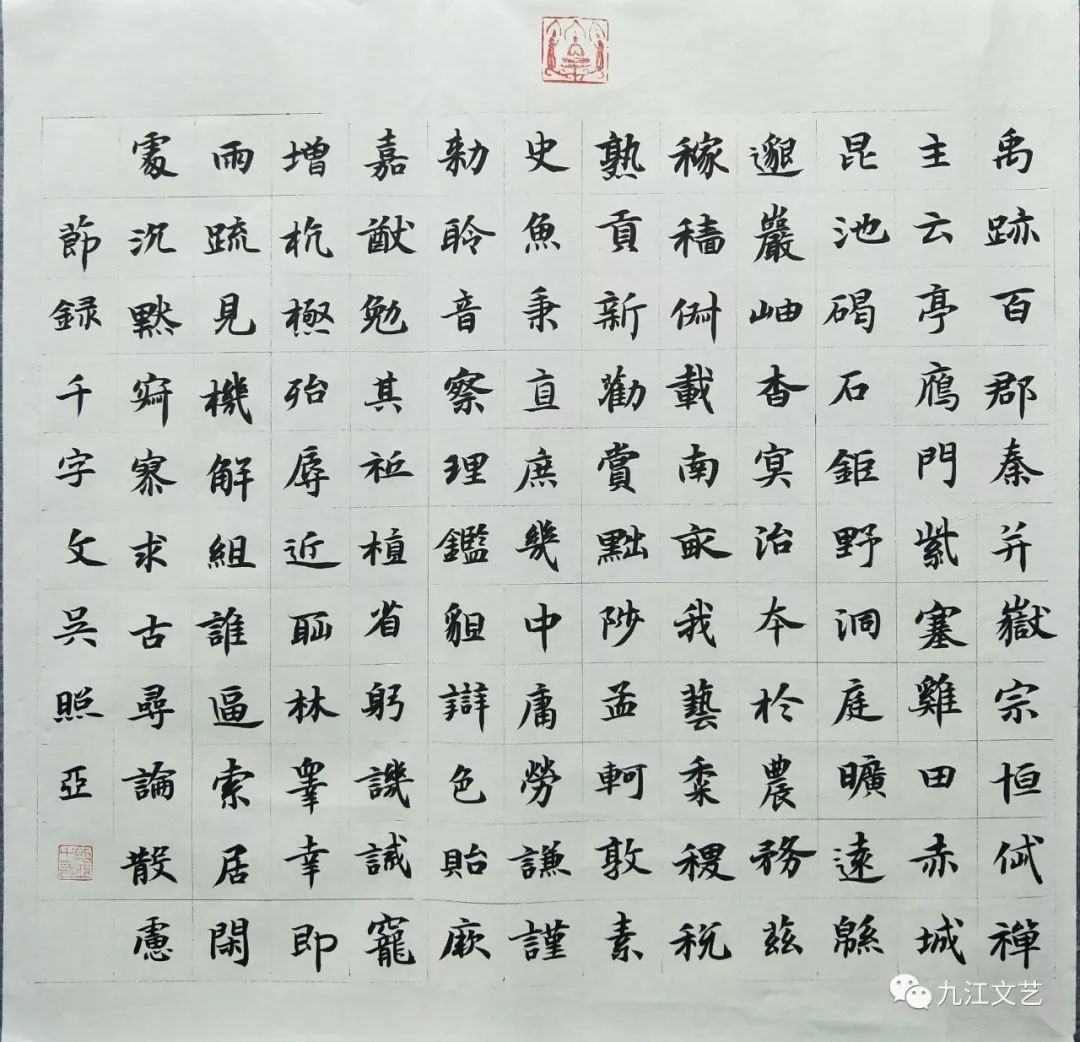 禹跡百郡秦并嶽宗恒岱禪
主云亭鴈門紫塞雞田赤城
昆池碣石鉅野洞庭曠遠緜
邈巖岫杳冥治本於農務茲
稼穡俶載南畝我藝黍稷稅
熟貢新勸賞黜陟孟軻敦素
史魚秉直庶幾中庸勞謙謹
勑聆音察理鑑貌辯色貽厥
嘉猷勉其祗植省躬譏誡寵
增抗極殆辱近恥林睾幸即
兩疏見機解組誰逼索居閑
處沉默寂寥求古尋論散慮
節録千字文吳照亞
九江文艺